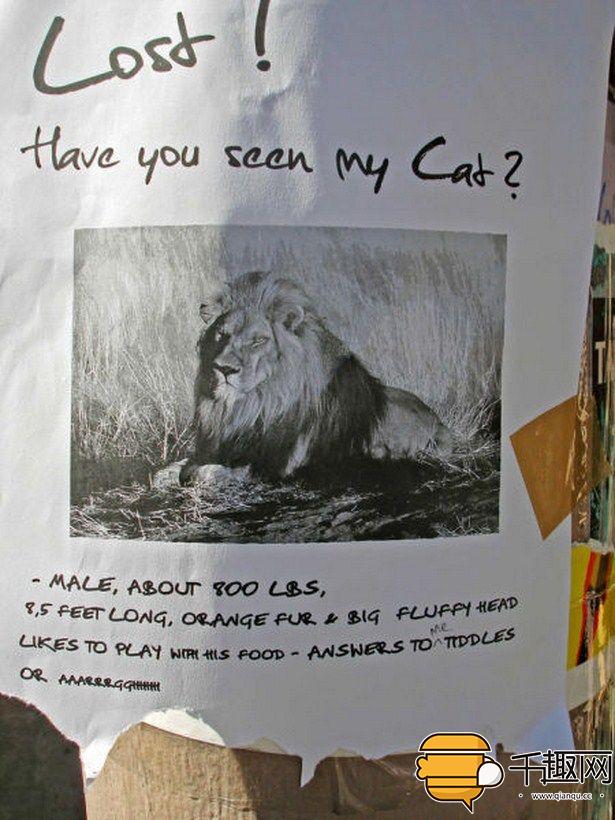 Lost !
Have you seen my Cat?
- MALE, ABOUT 800 LBS,
8,5 FEET LONG, ORANGE FUR & BIG FLUFFY HEAD
LIKES TO PLAY WITH HIS FOOD - ANSWERS TO MR TIDDLES
OR AAARRRGGHHHHH
T
千趣网
· www.qianqu.cc ·